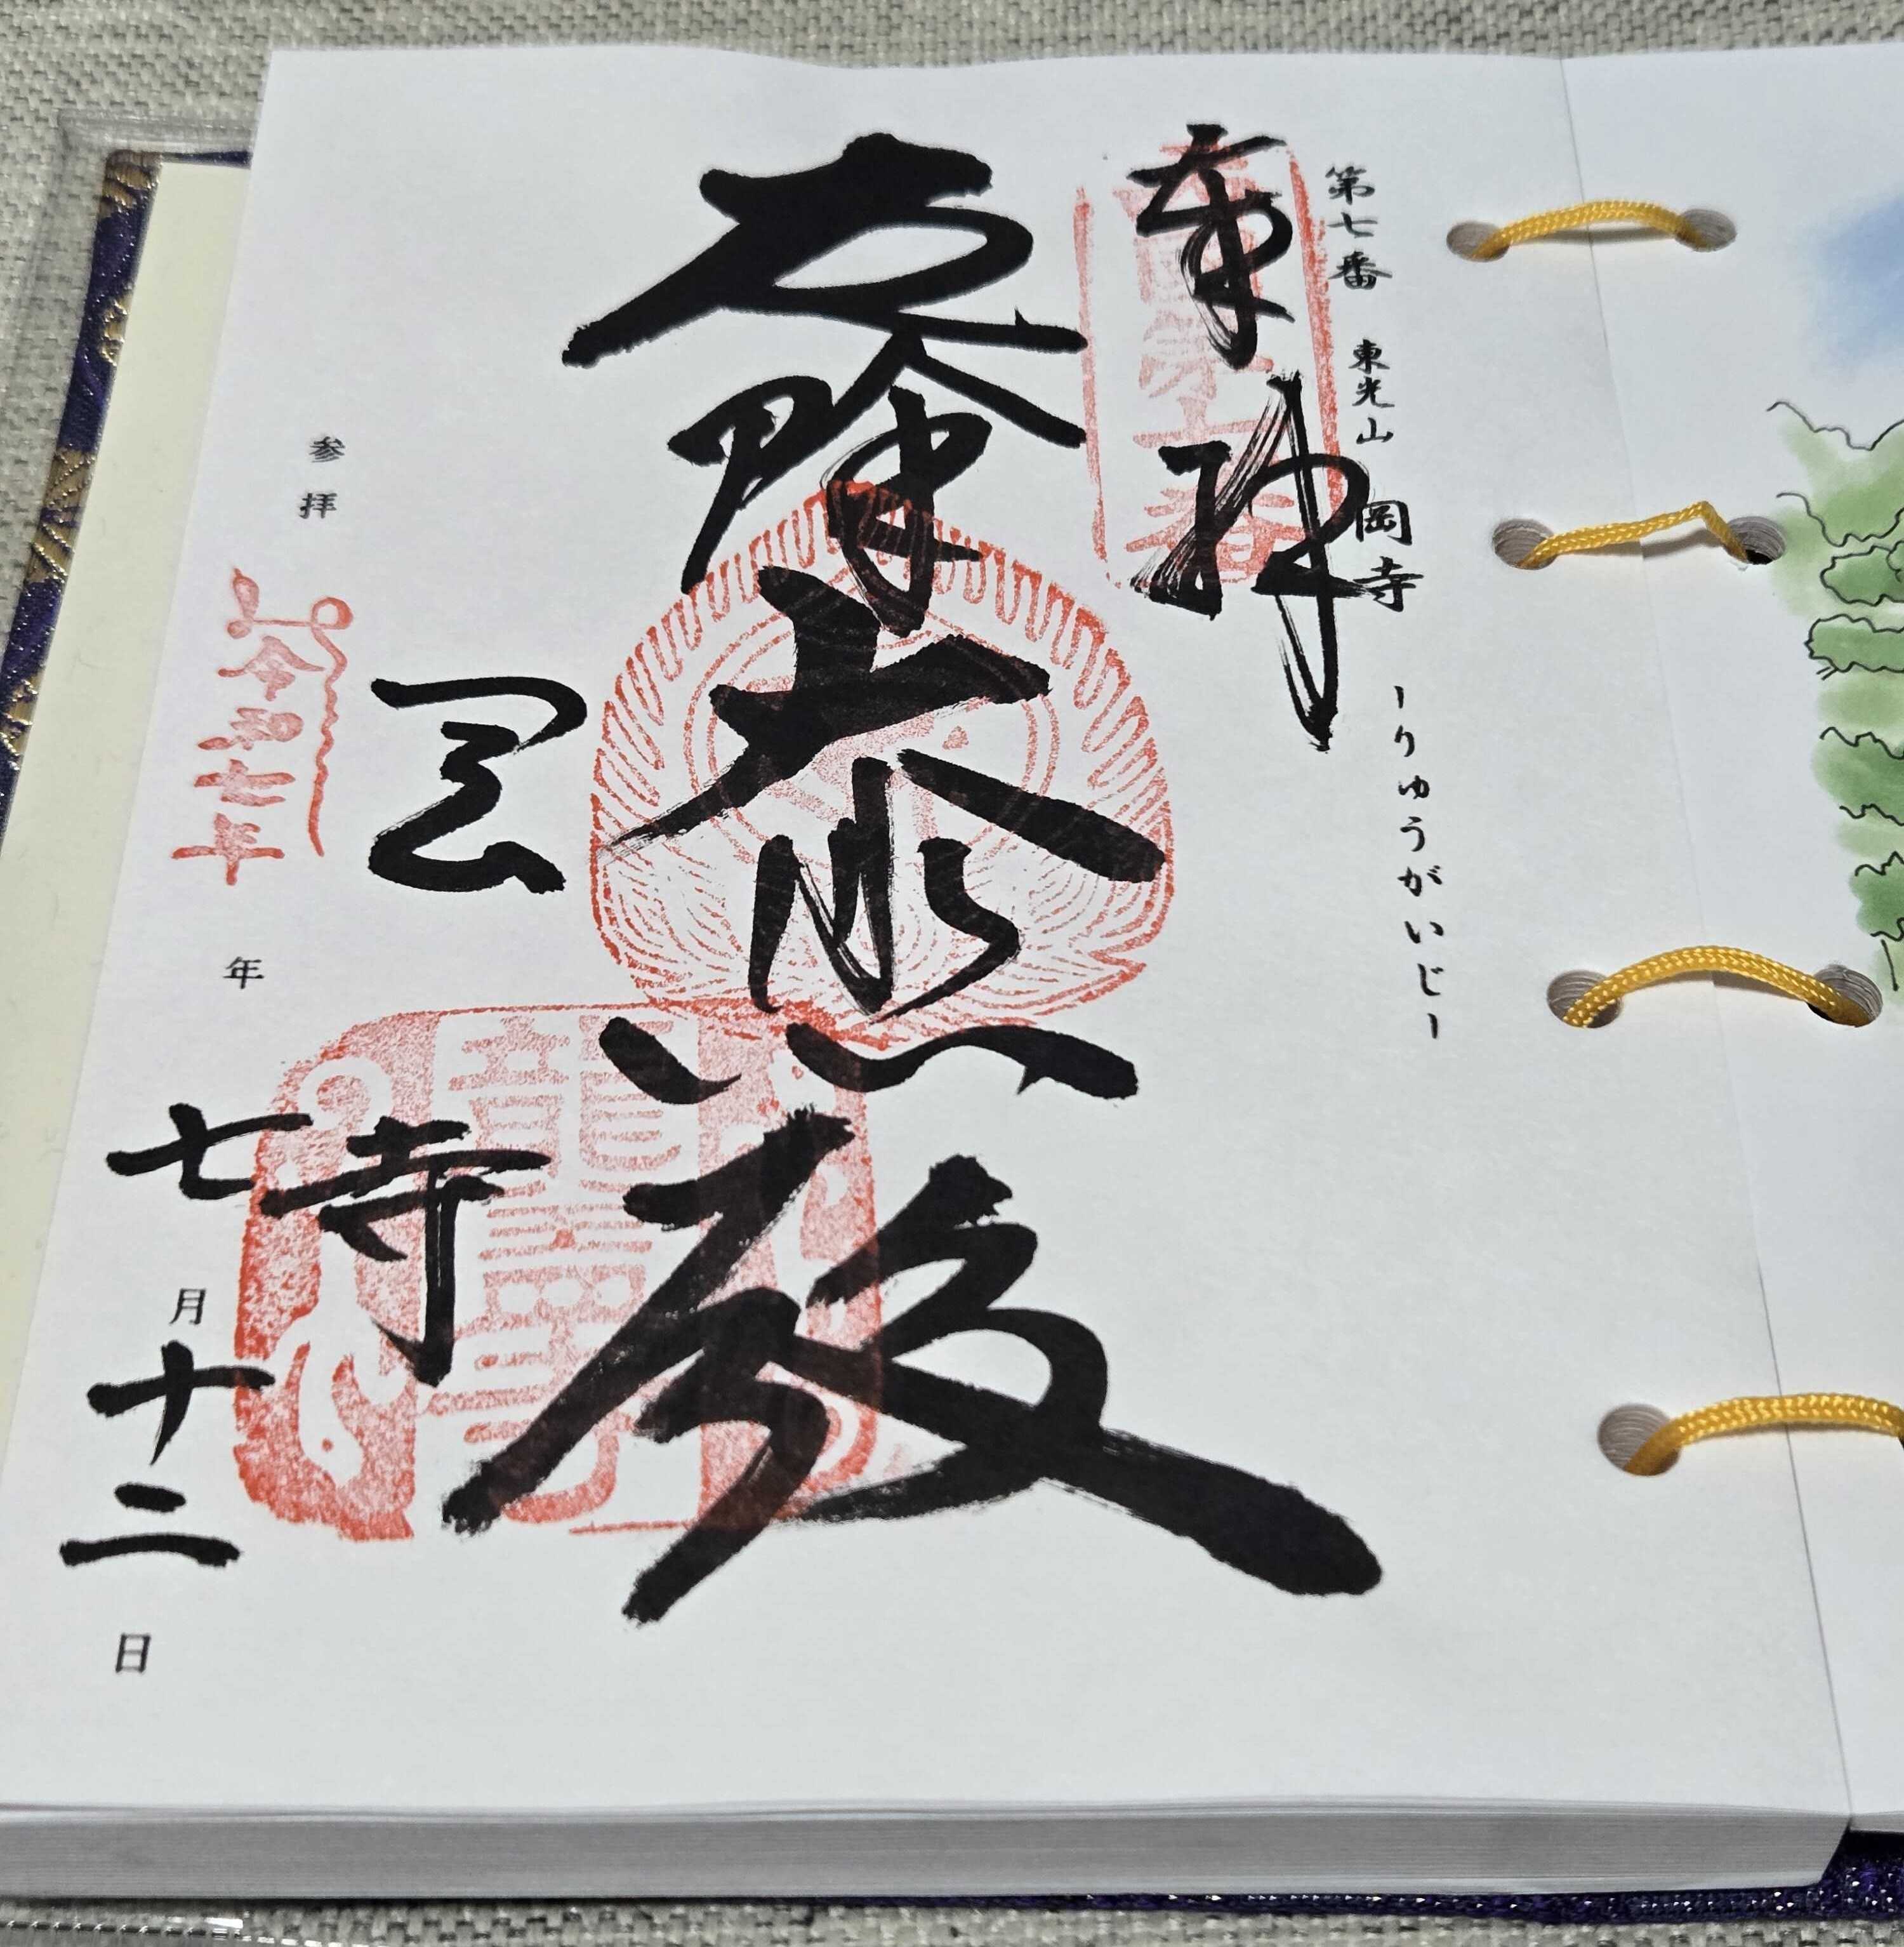 第七番 東光山 岡寺 ーりゅうがいじー
奉拝
西国第七番
厄除大悲殿
岡寺
龍蓋寺
参拝 令和七年 年 七月十二日